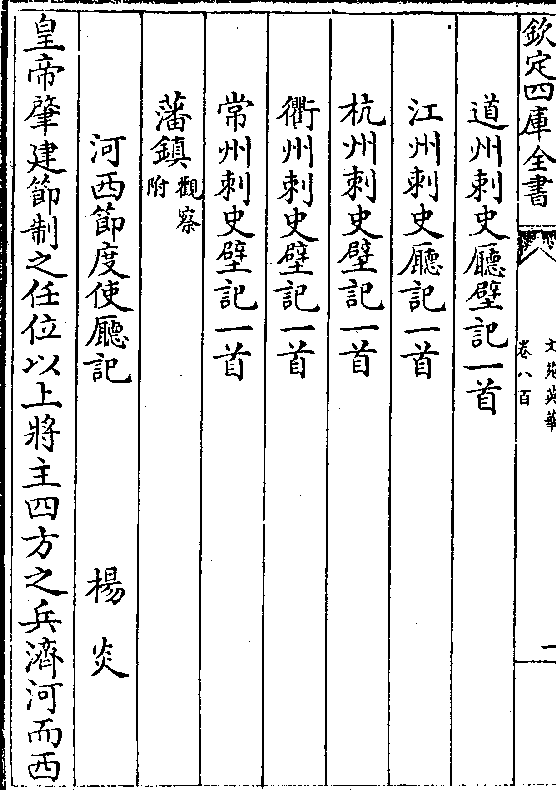 欽定四庫全書
文苑英華
卷八百
二
道州刺史廳壁記一首
江州刺史廳記一首
杭州刺史壁記一首
衢州刺史壁記一首
常州刺史壁記一首
藩鎮觀察附
河西節度使廳記 楊炎
皇帝肇建節制之任位以上將主四方之兵濟河而西